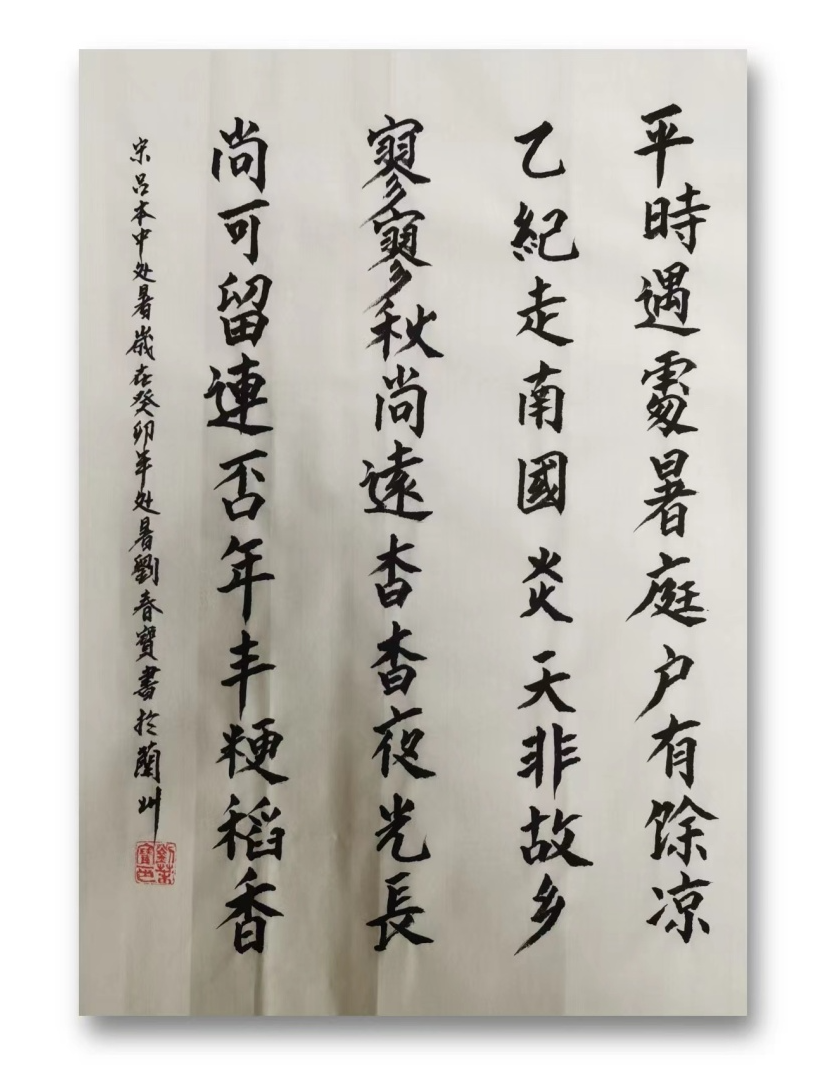 平時遇處暑庭户有餘凉
乙紀走南國炎天非故乡
寥寥秋尚遠杳杳夜光長
尚可留連否年丰粳稻香
宋吕本中处暑歲在癸卯年处暑劉春寶書於蘭州